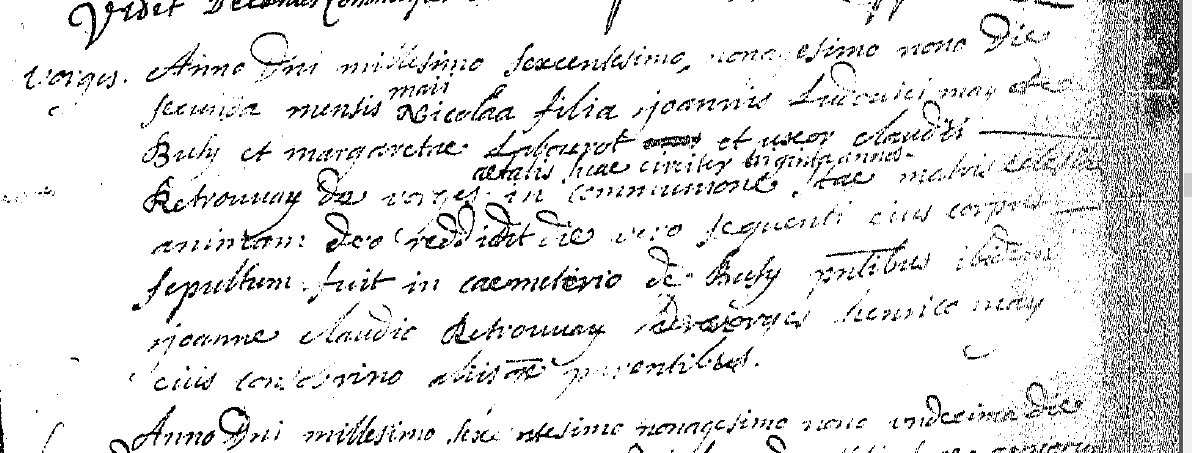 Vidit Decanus
Vorges. Anno Dni millesimo sexcentesimo, nonagesimo nono Die
secunda mensis maii Nicolaa filia ijoannis Ludovici may de
Busy et margaretae Labourot et uxor claudii
aetatis suae circiter triginta annos
Retrouvay de vorges in communione Stae matris Ecclesiae
animam deo reddidit die vero sequenti eius corpus
sepultum fuit in caemeterio de Busy pntibus ibidem
ijoanne claudio Retrouvay de vorges henrico may
eius consobrino aliisque parentibus.
Anno Dni millesimo sexcentesimo nonagesimo nono undecima die